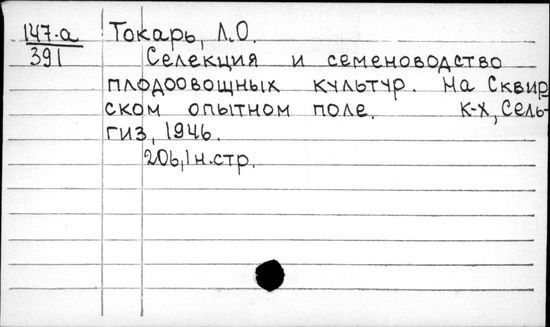 147-а Токарь, Л.О.
391 Селекция и семеноводство
плодоовощных культур. На Сквир
ском опытном поле. К-Х, Сель-
гиз, 1946.
206,1н.стр.